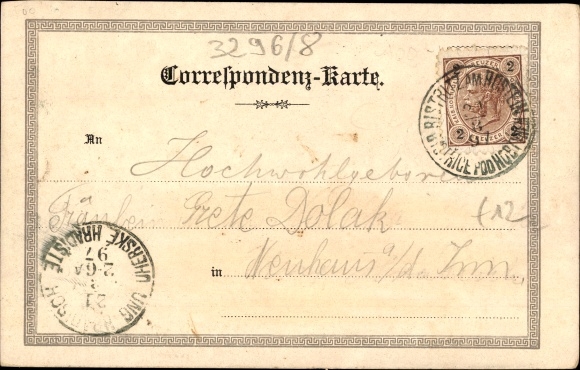 3296/8
Correspondenz-Karte.
2 KREUZER 2
BISTRITZ AM HOSTEIN
BYSTRICE POD HOST
An
Hochwohlgebore
Fräulein Grete Dolak
(12
in Neuhaus a/d. Inn
UNG. HRADISCH
UHERSKÉ HRADIŠTĚ
21
2-6A
97